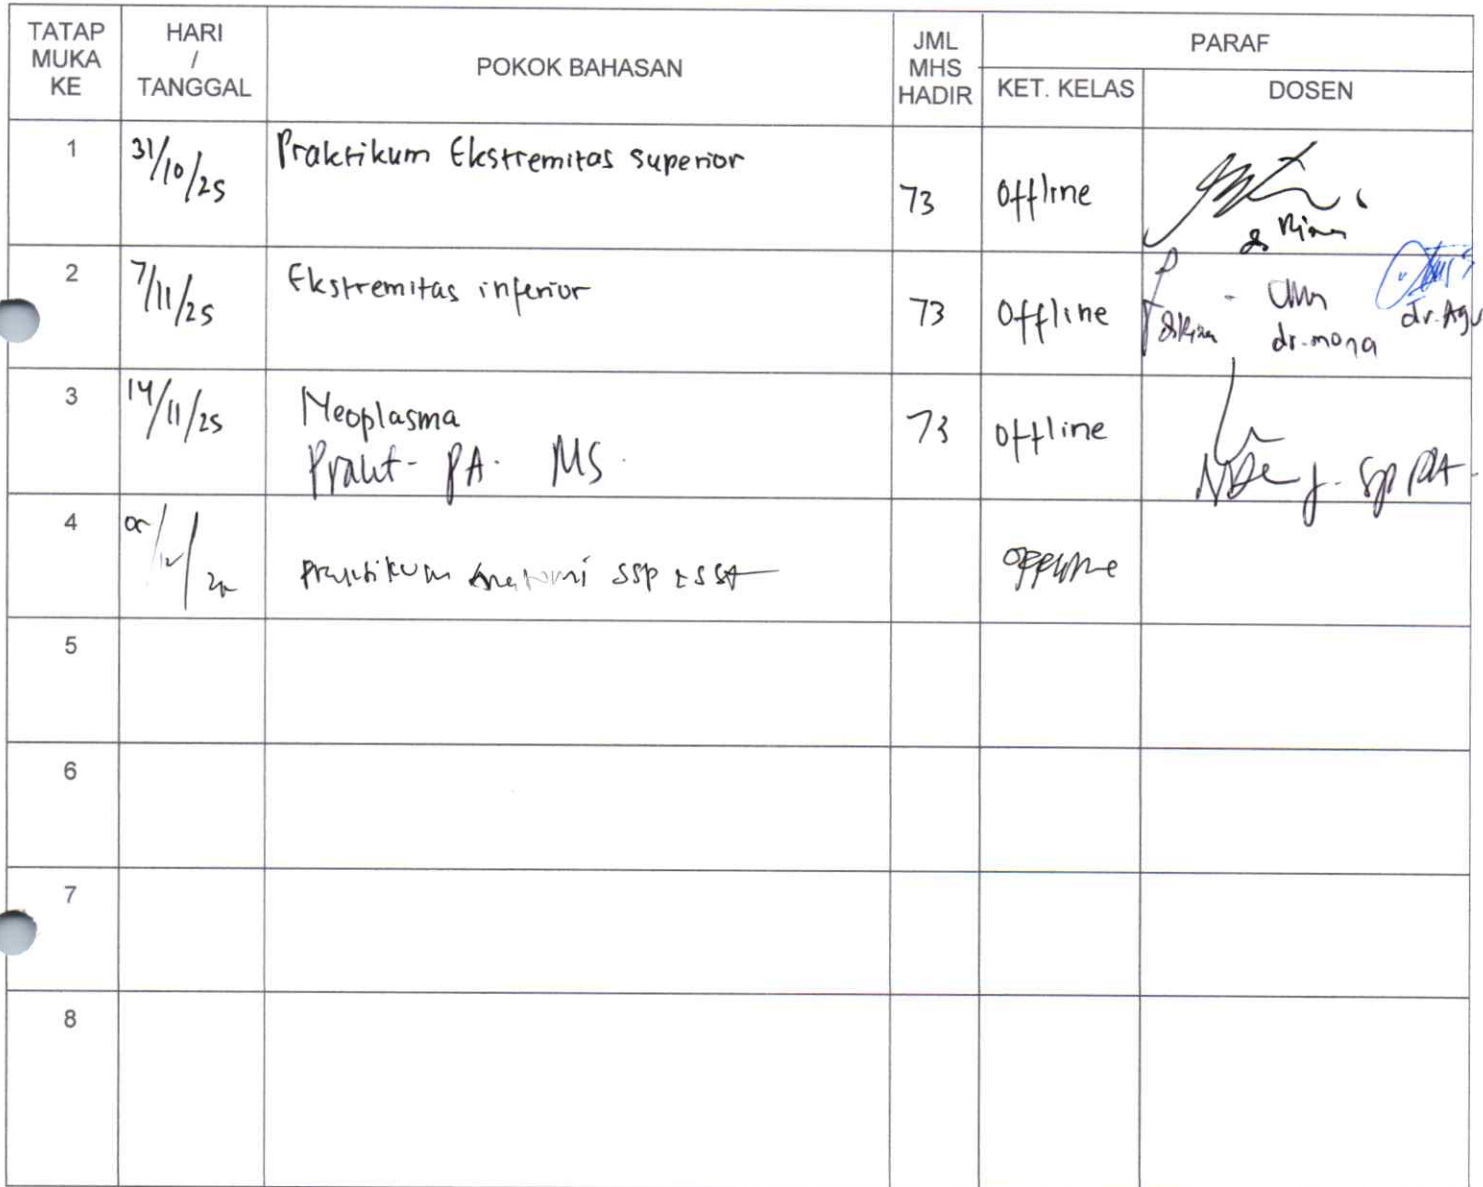 TATAP MUKA KE
HARI / TANGGAL
POKOK BAHASAN
JML MHS HADIR
PARAF
KET. KELAS
DOSEN
1 31/10/25 Praktikum Ekstremitas superior 73 Offline
dr Rina
2 7/11/25 Ekstremitas inferior 73 Offline
dr Rina dr. mona dr. Agu
3 14/11/25 Neoplasma 73 offline
Prakt- PA. MS.
Sp PA
4
Praktikum Anatomi SSP & SST offline
5
6
7
8